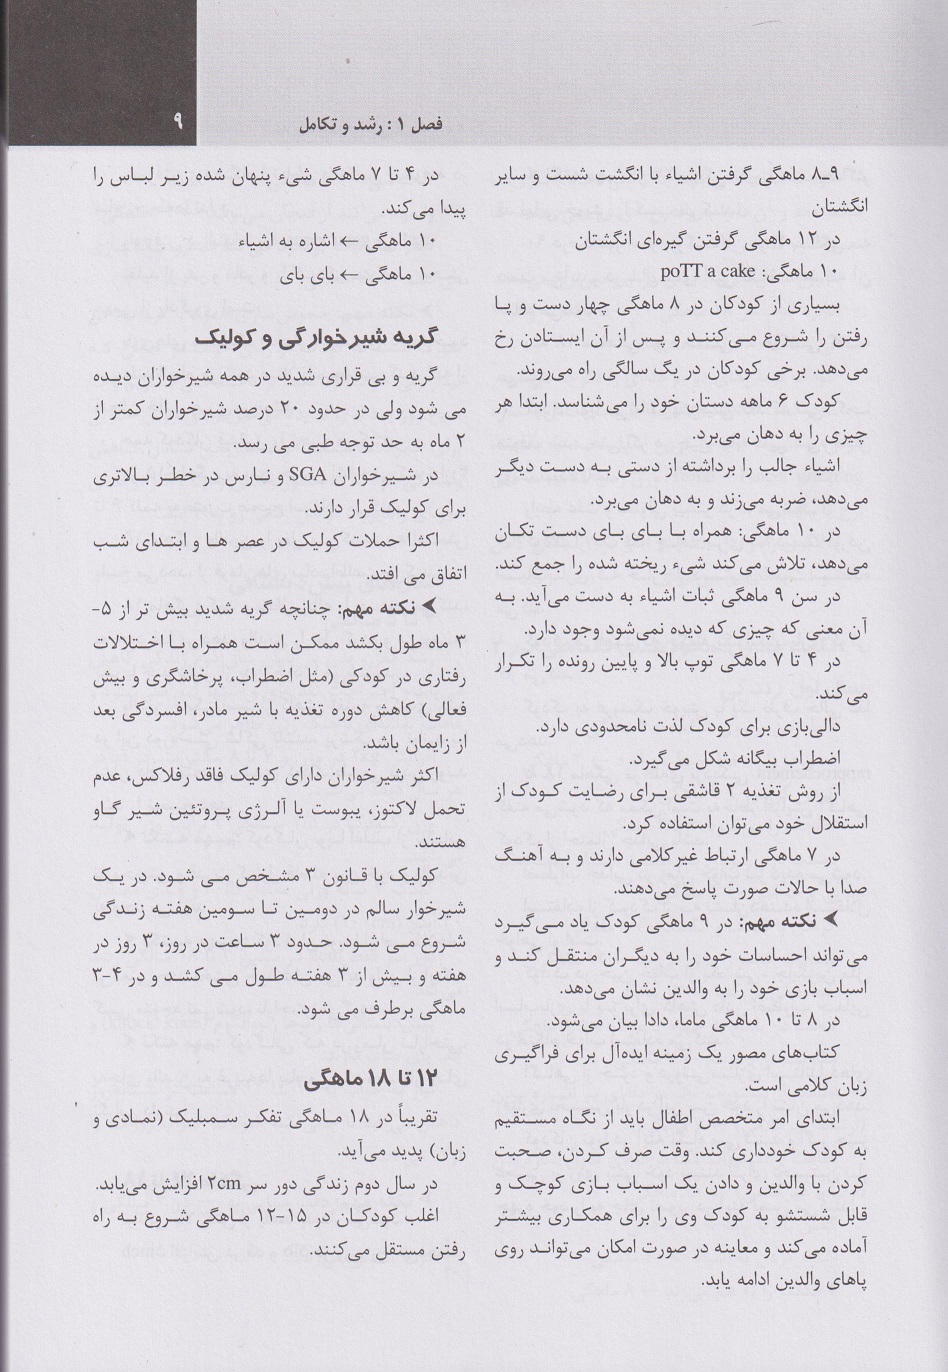 فصل ۱ : رشد و تکامل
۹
۸ـ۹ ماهگی گرفتن اشیاء با انگشت شست و سایر
انگشتان
در ۱۲ ماهگی گرفتن گیره‌ای انگشتان
۱۰ ماهگی: poTT a cake
بسیاری از کودکان در ۸ ماهگی چهار دست و پا
رفتن را شروع می‌کنند و پس از آن ایستادن رخ
می‌دهد. برخی کودکان در یک سالگی راه می‌روند.
کودک ۶ ماهه دستان خود را می‌شناسد. ابتدا هر
چیزی را به دهان می‌برد.
اشیاء جالب را برداشته از دستی به دست دیگر
می‌دهد، ضربه می‌زند و به دهان می‌برد.
در ۱۰ ماهگی: همراه با بای بای دست تکان
می‌دهد، تلاش می‌کند شیء ریخته شده را جمع کند.
در سن ۹ ماهگی ثبات اشیاء به دست می‌آید. به
آن معنی که چیزی که دیده نمی‌شود وجود دارد.
در ۴ تا ۷ ماهگی توپ بالا و پایین رونده را تکرار
می‌کند.
دالی‌بازی برای کودک لذت نامحدودی دارد.
اضطراب بیگانه شکل می‌گیرد.
از روش تغذیه ۲ قاشقی برای رضایت کودک از
استقلال خود می‌توان استفاده کرد.
در ۷ ماهگی ارتباط غیرکلامی دارند و به آهنگ
صدا با حالات صورت پاسخ می‌دهند.
➤ نکته مهم: در ۹ ماهگی کودک یاد می‌گیرد
می‌تواند احساسات خود را به دیگران منتقل کند و
اسباب بازی خود را به والدین نشان می‌دهد.
در ۸ تا ۱۰ ماهگی ماما، دادا بیان می‌شود.
کتاب‌های مصور یک زمینه ایده‌آل برای فراگیری
زبان کلامی است.
ابتدای امر متخصص اطفال باید از نگاه مستقیم
به کودک خودداری کند. وقت صرف کردن، صحبت
کردن با والدین و دادن یک اسباب بازی کوچک و
قابل شستشو به کودک وی را برای همکاری بیشتر
آماده می‌کند و معاینه در صورت امکان می‌تواند روی
پاهای والدین ادامه یابد.
در ۴ تا ۷ ماهگی شیء پنهان شده زیر لباس را
پیدا می‌کند.
۱۰ ماهگی ← اشاره به اشیاء
۱۰ ماهگی ← بای بای
گریه شیرخوارگی و کولیک
گریه و بی قراری شدید در همه شیرخواران دیده
می شود ولی در حدود ۲۰ درصد شیرخواران کمتر از
۲ ماه به حد توجه طبی می رسد.
در شیرخواران SGA و نارس در خطر بالاتری
برای کولیک قرار دارند.
اکثرا حملات کولیک در عصر ها و ابتدای شب
اتفاق می افتد.
➤ نکته مهم: چنانچه گریه شدید بیش تر از ۵-
۳ ماه طول بکشد ممکن است همراه با اختلالات
رفتاری در کودکی (مثل اضطراب، پرخاشگری و بیش
فعالی) کاهش دوره تغذیه با شیر مادر، افسردگی بعد
از زایمان باشد.
اکثر شیرخواران دارای کولیک فاقد رفلاکس، عدم
تحمل لاکتوز، یبوست یا آلرژی پروتئین شیر گاو
هستند.
کولیک با قانون ۳ مشخص می شود. در یک
شیرخوار سالم در دومین تا سومین هفته زندگی
شروع می شود. حدود ۳ ساعت در روز، ۳ روز در
هفته و بیش از ۳ هفته طول می کشد و در ۴-۳
ماهگی برطرف می شود.
۱۲ تا ۱۸ ماهگی
تقریباً در ۱۸ ماهگی تفکر سمبلیک (نمادی و
زبان) پدید می‌آید.
در سال دوم زندگی دور سر ۲cm افزایش می‌یابد.
اغلب کودکان در ۱۵-۱۲ ماهگی شروع به راه
رفتن مستقل می‌کنند.